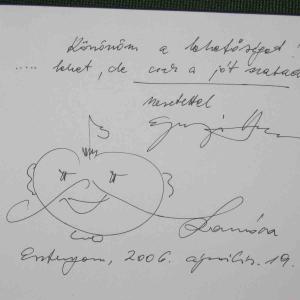 Köszönöm a lehetőséget!
..... lehet, de csak a jót szabad
szeretettel
Esztergom, 2006. április. 19.